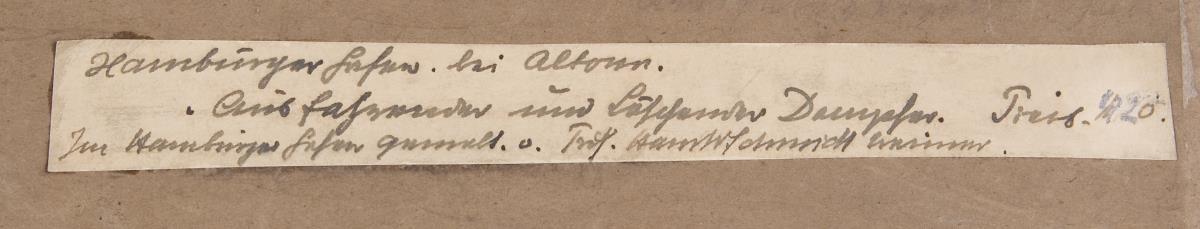 Hamburger Hafen. bei Altona.
. Ausfahrender und Löschender Dampfer. Preis.
Im Hamburger Hafen gemalt. v. Prof. Hans W Schmidt Weimar.